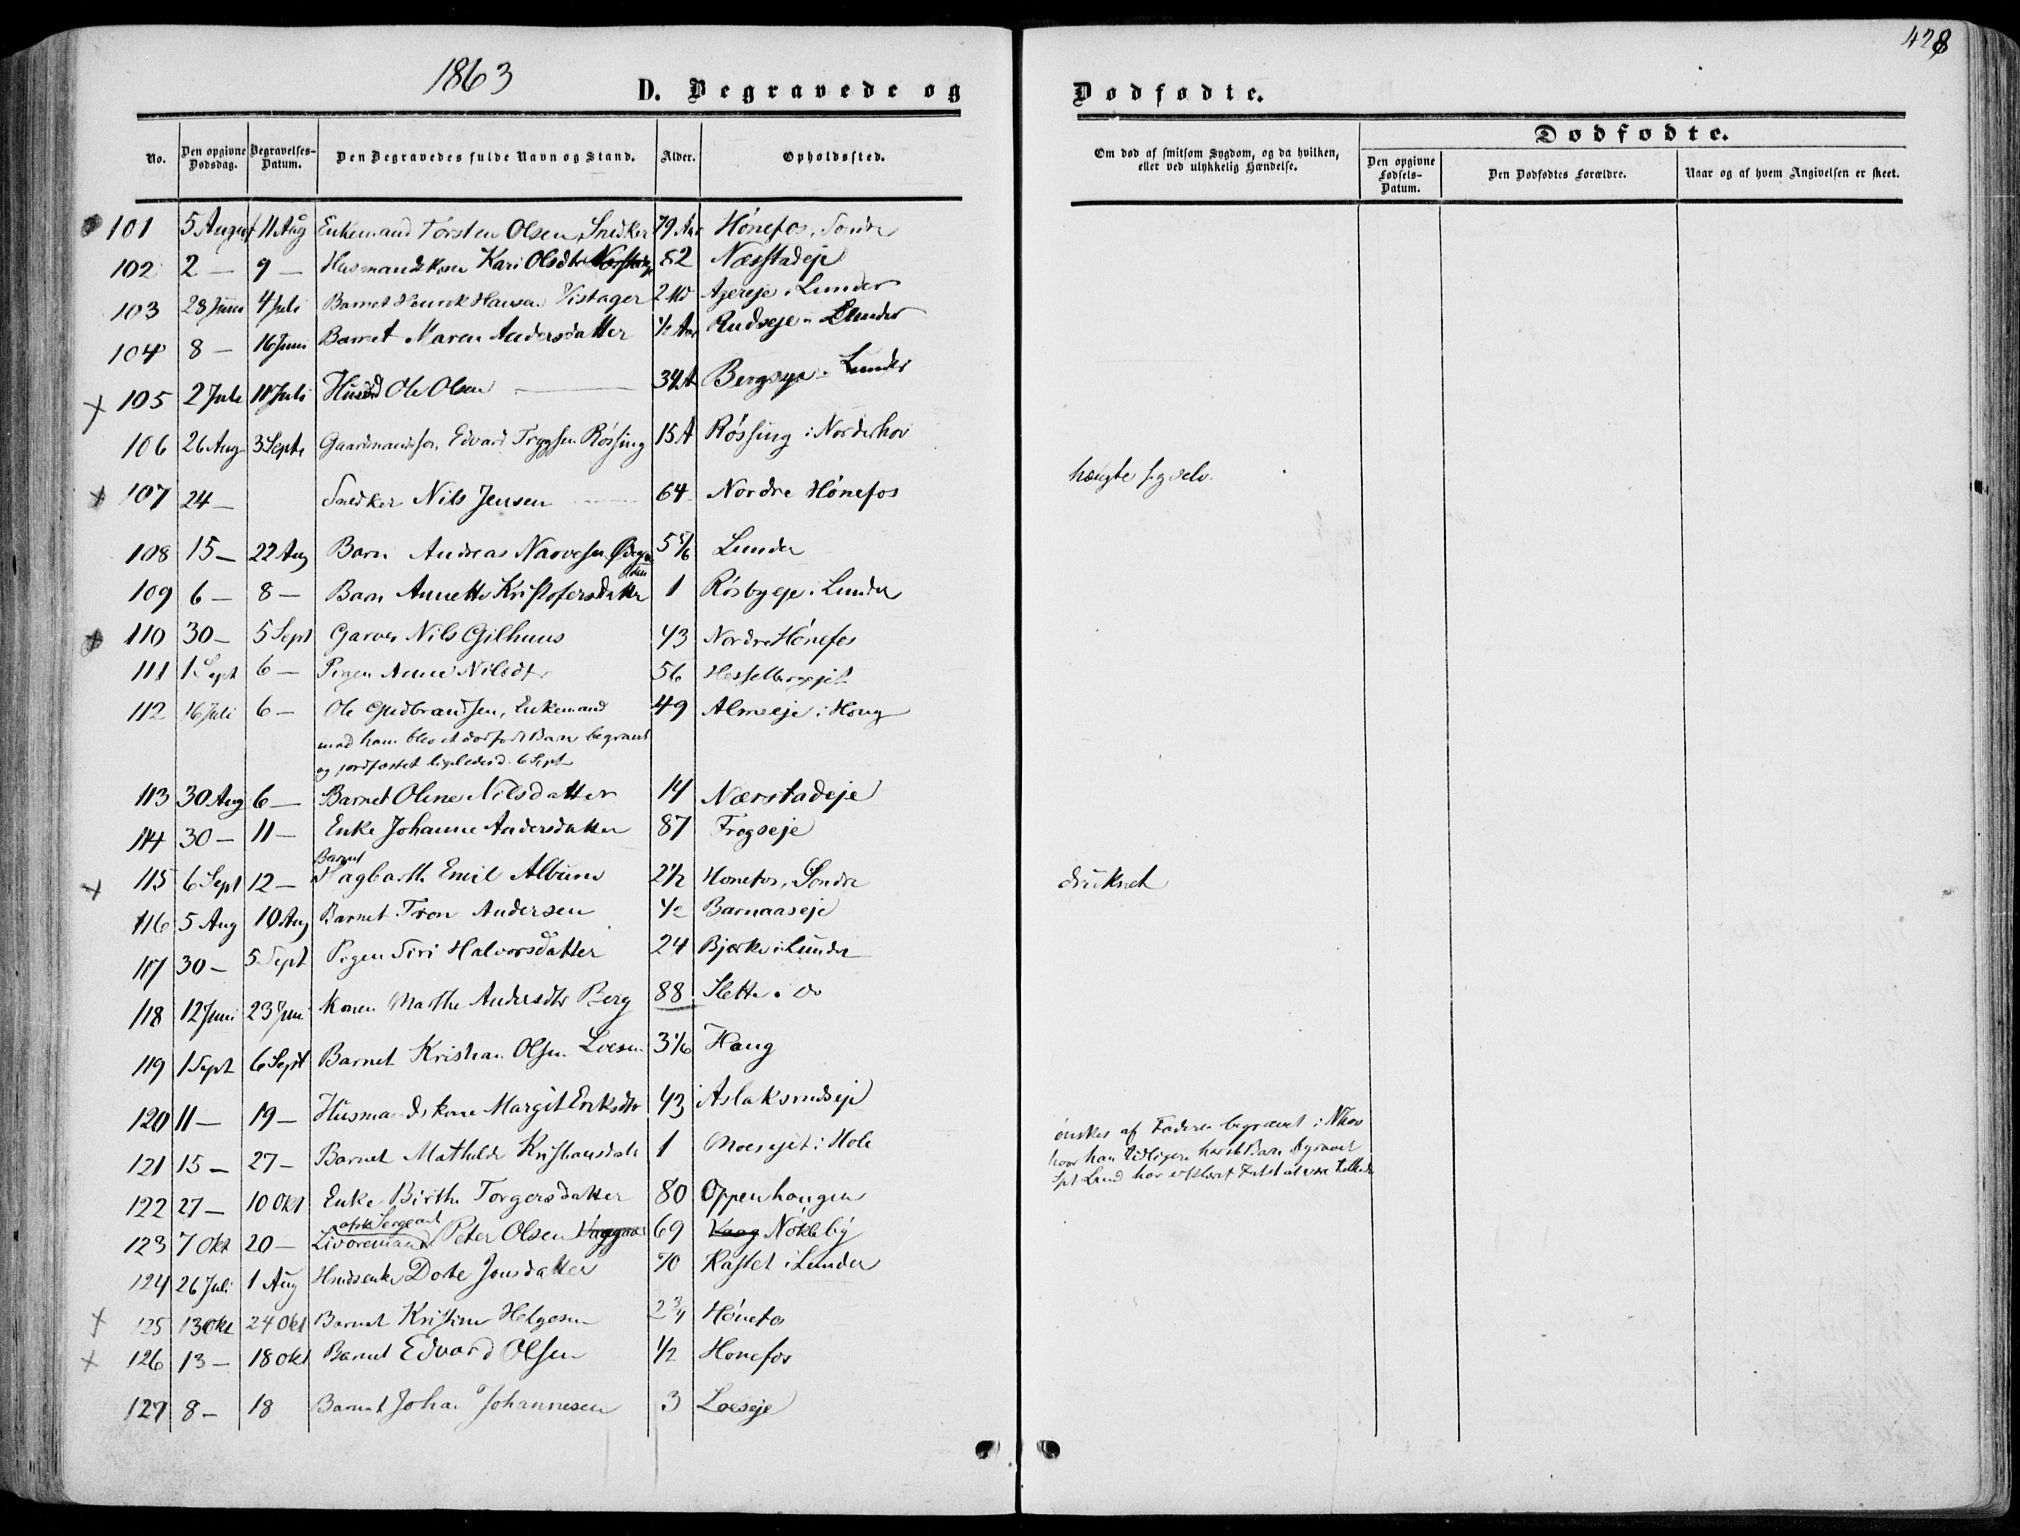 428
1863
D. Begravede og Dødfødte.
Dødfødte.
No.
Den opgivne Dødsdag.
Begravelses-Datum.
Den Begravedes fulde Navn og Stand.
Alder.
Opholdssted.
Om død af smitsom Sygdom, og da hvilken, eller ved ulykkelig Hændelse.
Den opgivne Fødsels-Datum.
Den Dødfødtes Forældre.
Naar og af hvem Angivelsen er skeet.
101 5 August 11 Aug Enkemand Torsten Olsen, Snedker 79 Aar Hønefos, Søndre
102 2 — 9 — Husmandskone Kari Olsdtr 82 Næsstadeje
103 28 Juni 4 Juli Barnet Henrik Hansen Vistager 2 Md Agereje i Lunder
104 8 — 16 Juni Barnet Maren Andersdatter ½ Aar Rudseje - Lunder
105 2 Juli 11 Juli Ole Olsen — 34 A Bergseje - Lunder
106 26 Aug 3 Septr Gaardmandssøn Edvard Tryggsen Røssing 15 A Røssing i Norderhov
107 24 — Snedker Nils Jensen 64 Nordre Hønefos hængte sig selv.
108 15 — 22 Aug Barn Andreas Narvesen 5 5/6 Lunder
109 6 — 8 — Barn Annette Kristofersdatter 1 Røsbyeje i Lunder
110 30 — 5 Sept Garver Nils Gilhuus 43 Nordre Hønefos
111 1 Sept 6 — Pigen Anne Nilsdtr 56 Hesselbergejet
112 16 Juli 6 — Ole Gudbrandsen, Enkemand 49 Almeeje i Houg
med ham blev et dødfødt Barn begravet
og jordfæstet ligeledes d. 6 Sept
113 30 Aug 6 — Barnet Oline Nilsdatter 14 Nærstadeje
114 30 — 11 — Enke Johanne Andersdatter 87 Frogseje
115 6 Sept 12 — Barnet Hagbarth Emil Album 2½ Hønefos, Søndre druknet
116 5 Aug 10 Aug Barnet Tron Andersen ½ Barnaaseje
117 30 — 5 Sept Pigen Siri Halvorsdatter 24 Bjørke i Lunder
118 12 Juni 23 Juni Konen Marthe Andersdtr Berg 88 Sletta i do
119 1 Sept 6 Sept Barnet Kristian Olsen Loesen 3 1/6 Houg
120 11 — 19 — Husmandskone Margit Eriksdtr 43 Aslaksrudseje
121 15 — 27 — Barnet Mathilde Kristiansdatr 1 Moesejet i Hole
ønskes af Faderen begravet i Nhov
hvor han tidligere har et Barn begravet
Spt Lund har erklæret Intet at være
122 27 — 10 Okt Enke Birthe Torgersdatter 80 Oppenhougen
123 7 Okt 20 — afsk. Sergeant Peter Olsen 69 Vaag Nökleby
124 26 Juli 1 Aug Dorte Jonsdatter 70 Rastet i Lunder
125 13 Okt 24 Okt Barnet Kristine Helgesen 2 ¾ Hønefos
126 13 — 18 Okt Barnet Edvard Olsen ½ Hønefos
127 8 — 18 Barnet Johan Johannesen 3 Loeseje